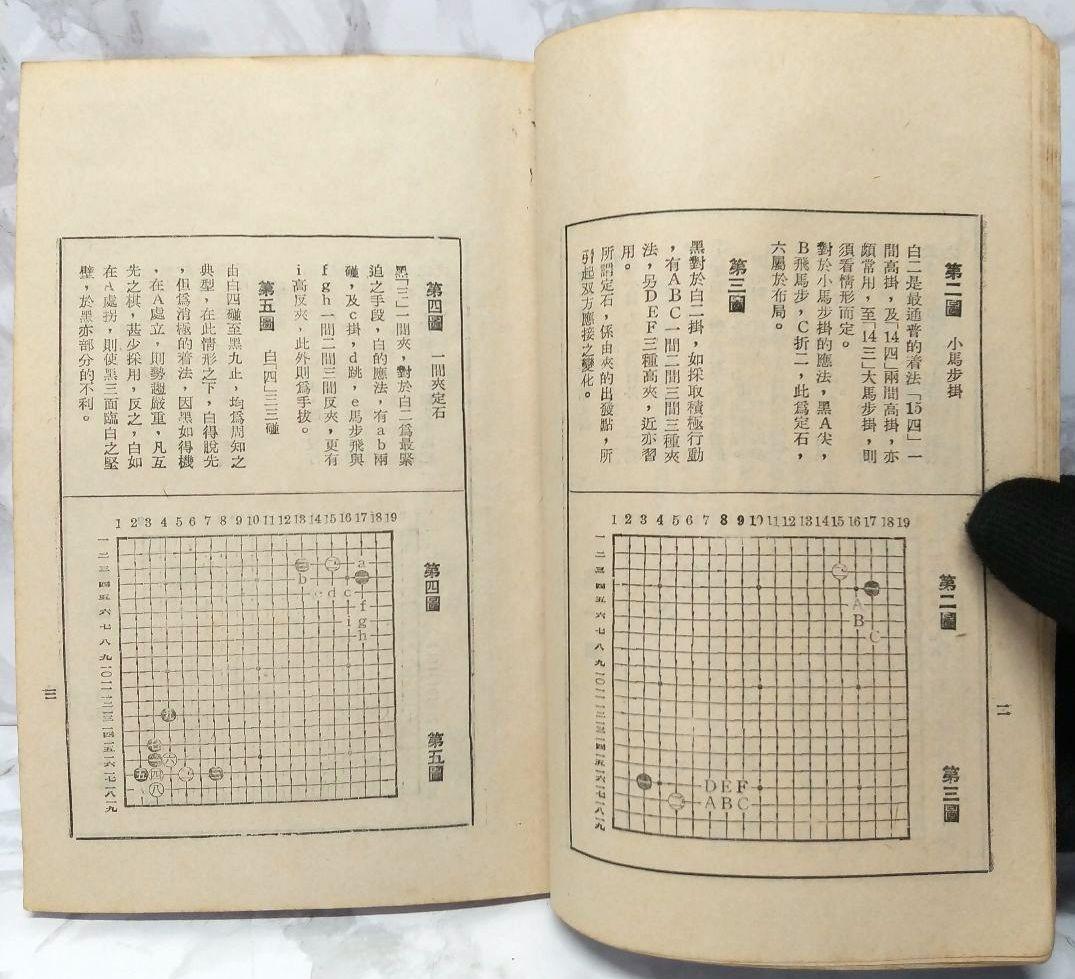 第二圖　小馬步掛
白二是最通普的着法「15四」一
間高掛，及「14四」兩間高掛，亦
頗常用，至「14三」大馬步掛，則
須看情形而定。
對於小馬步掛的應法，黑A尖，
B飛馬步，C折二，此爲定石，
六屬於布局。
第三圖
黑對於白二掛，如採取積極行動
，有ABC一間二間三間三種夾
法，另DEF三種高夾，近亦習
用。
所謂定石，係由夾的出發點，所
引起双方應接之變化。
第二圖
1 2 3 4 5 6 7 8 9 10 11 12 13 14 15 16 17 18 19
一
二
三
四
五
六
七
八
九
一〇
一一
一二
一三
一四
一五
一六
一七
一八
一九
A
B
C
DEF
ABC
第三圖
二
第四圖　一間夾定石
黑「三」一間夾，對於白二爲最緊
迫之手段，白的應法，有ab兩
碰，及c掛，d跳，e馬步飛與
fgh一間二間三間反夾，更有
i高反夾，此外則爲手拔。
第五圖　白「四」三三碰
由白四碰至黑九止，均爲周知之
典型，在此情形之下，白得脫先
，但爲消極的着法，因黑如得機
，在A處立，則勢趨嚴重，凡互
先之棋，甚少採用，反之，白如
在A處拐，則使黑三面臨白之堅
壁，於黑亦部分的不利。
第四圖
1 2 3 4 5 6 7 8 9 10 11 12 13 14 15 16 17 18 19
一
二
三
四
五
六
七
八
九
一〇
一一
一二
一三
一四
一五
一六
一七
一八
一九
a
b
e d c
f
i g
h
九
七
六
五 四 三
八
第五圖
三